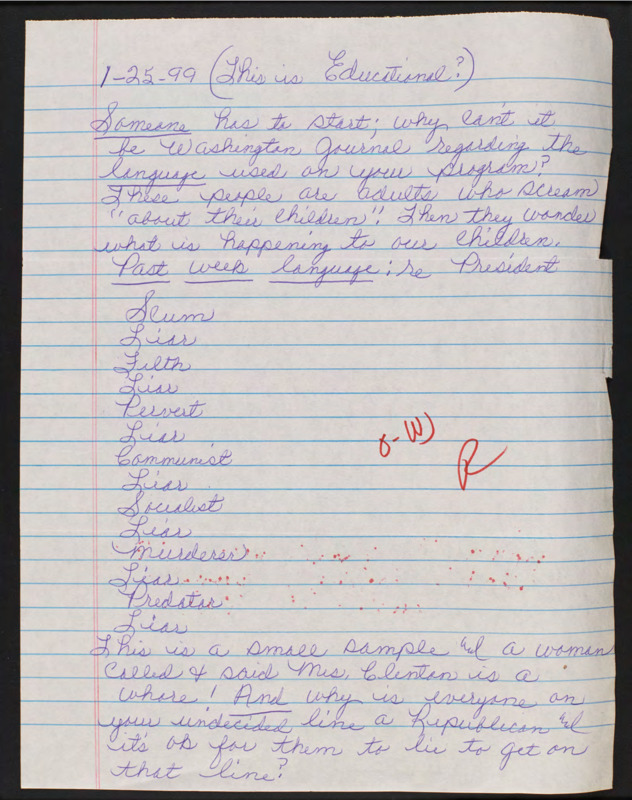 1-25-99 (This is Educational?)
Someone has to start; why can't it
be Washington Journal regarding the
language used on your program?
These people are adults who scream
"about their children". Then they wonder
what is happening to our children.
Past week language; re President
Scum
Liar
Filth
Liar
Pervert
Liar
Communist
Liar
Socialist
Liar
Murderer
Liar
Predator
Liar
O-W)
R
This is a small sample & a woman
called & said Mrs. Clinton is a
whore! And why is everyone on
your undecided line a Republican &
it's ok for them to lie to get on
that line?